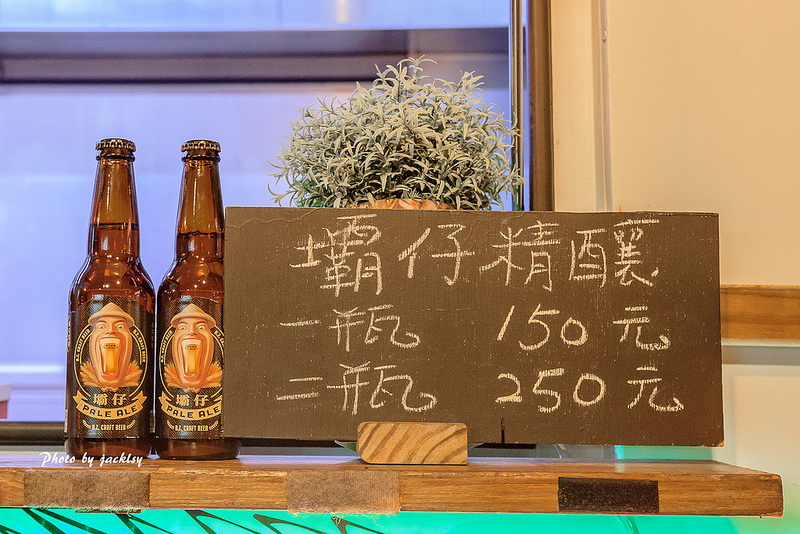 壩仔精釀
一瓶 150元
二瓶 250元
B.Z. CRAFT BEER
壩仔
PALE ALE
B.Z. CRAFT BEER
壩仔
PALE ALE
B.Z. CRAFT BEER
Photo by jacklsy